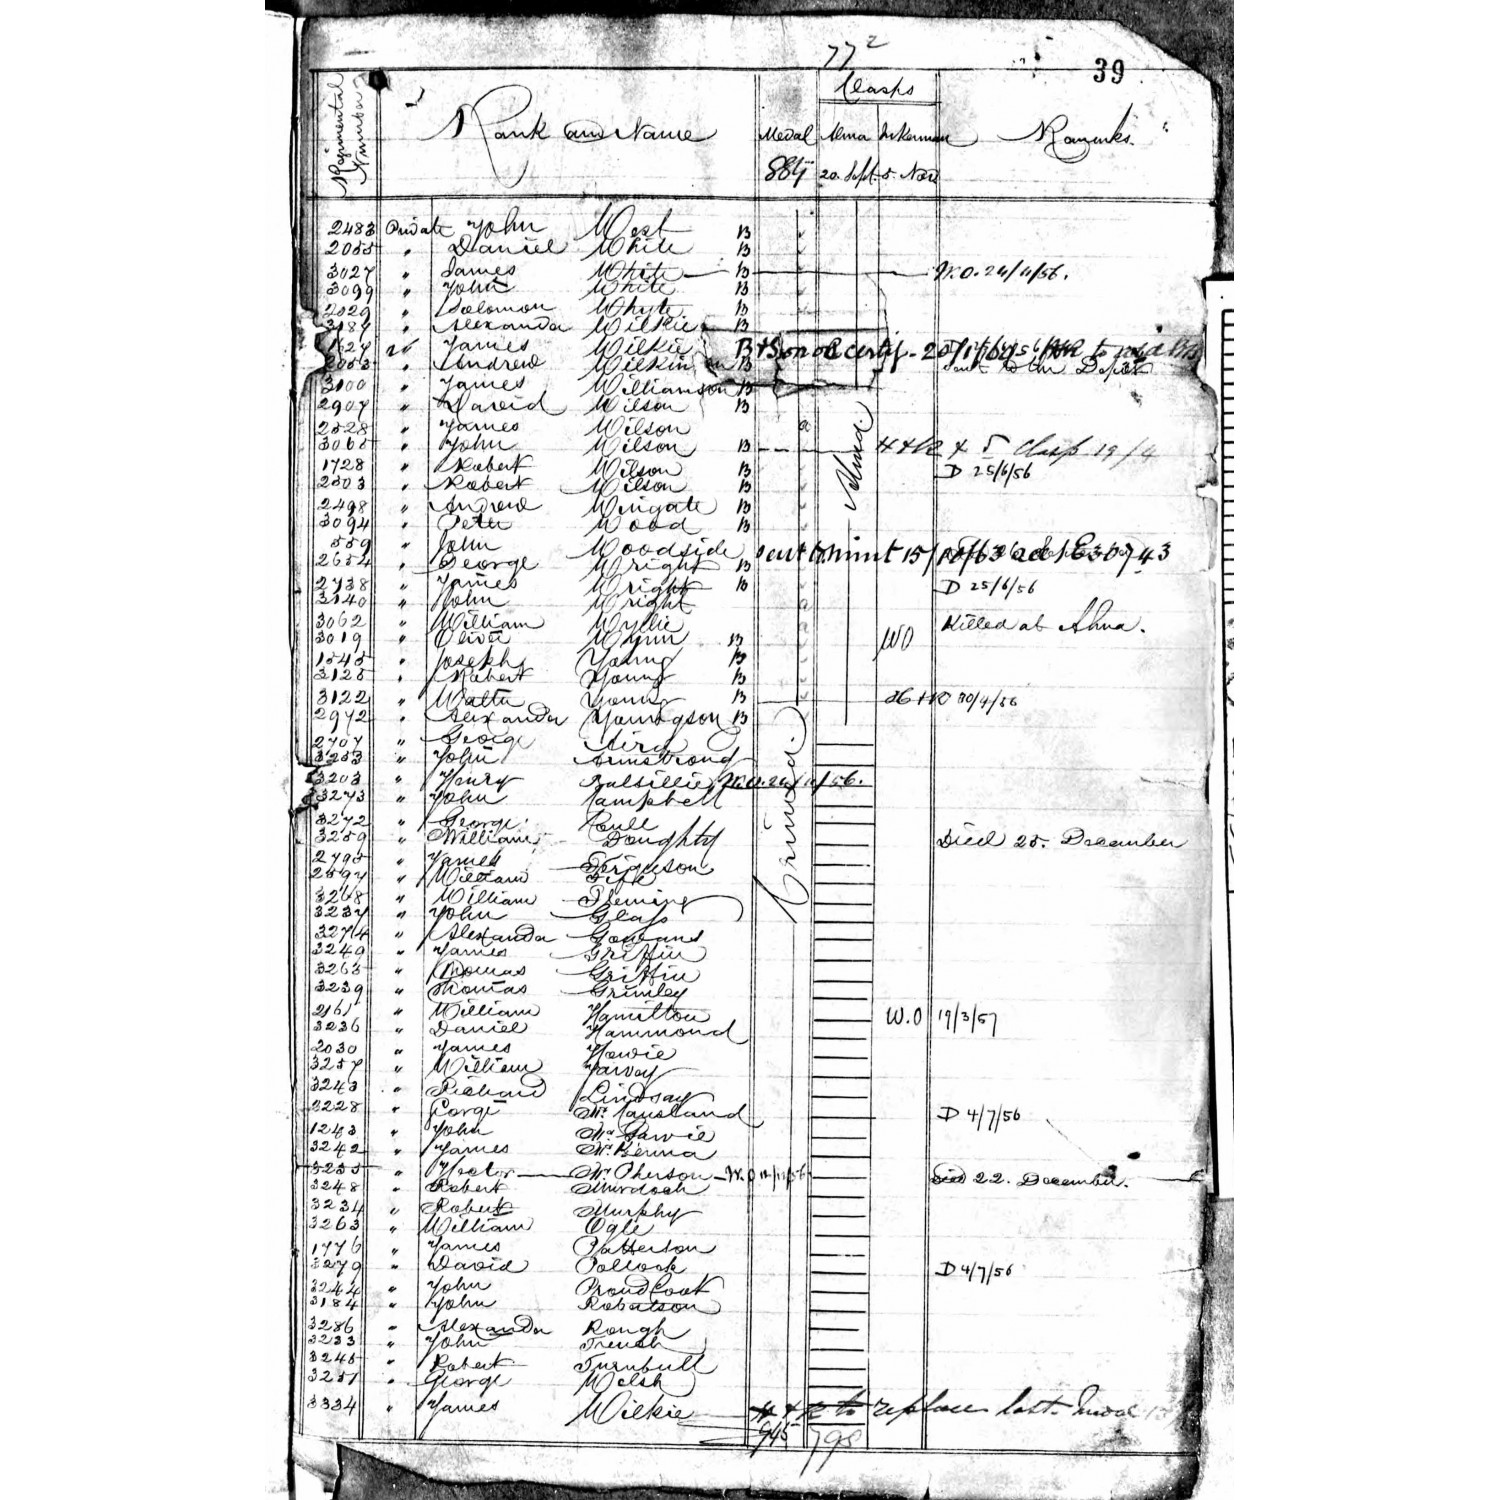 77 2
39
Regimental Number
Rank and Name
Medal
Clasps
Alma
Inkerman
Remarks.
884
20. Sept.
5. Nov
2483 Private John West B
2055 " Daniel White B
3027 " James White B W.O. 24/11/56.
3099 " John White B
2029 " Solomon Whyte B
3187 " Alexander Wilkie B
1627 " James Wilkie certif. 20/1/
2053 " Andrew Wilkinson B sent to the Depot
3100 " James Williamson B
2907 " David Wilson B
2528 " James Wilson
3065 " John Wilson B 5 Clasp 19/4
1728 " Robert Wilson B D 25/6/56
2503 " Robert Wilson B
2498 " Andrew Wingate B
3094 " Peter Wood B
559 " John Woodside sent to mint 15/
2654 " George Wright B
2738 " James Wright B D 25/6/56
3140 " John Wright
3062 " William Wyllie Killed at Alma.
3019 " Oliver Wynn B WO
1545 " Joseph Young B
3125 " Robert Young B
3122 " Walter Young B 30/4/56
2972 " Alexander Youngson B
Alma.
Crimea.
2707 " George Airy
3253 " John Armstrong
3203 " Henry Balsillie W.O. 24/11/56.
3273 " John Campbell
3272 " George Coull
3259 " William Doughty Died 25. December
2795 " James Ferguson
2594 " William Fife
3268 " William Fleming
3237 " John Glass
3274 " Alexander Gowans
3249 " James Griffin
3265 " Thomas Griffin
3239 " Thomas Grimley
2161 " William Hamilton W.O 19/3/57
3236 " Daniel Hammond
2030 " James Howie
3257 " William Jarvey
3243 " Richard Lindsay
3228 " George McCausland D 4/7/56
1243 " John McGarvie
3242 " James McKenna
3235 " Hector McPherson W.O 12/11/56 Died 22. December.
3248 " Robert Murdoch
3234 " Robert Murphy
3263 " William Ogle
1776 " James Patterson
3279 " David Pollock D 4/7/56
3244 " John Proudfoot
3184 " John Robertson
3286 " Alexander Rough
3233 " John Trench
3245 " Robert Turnbull
3251 " George Welsh
3334 " James Wilkie to replace lost medal
945 798